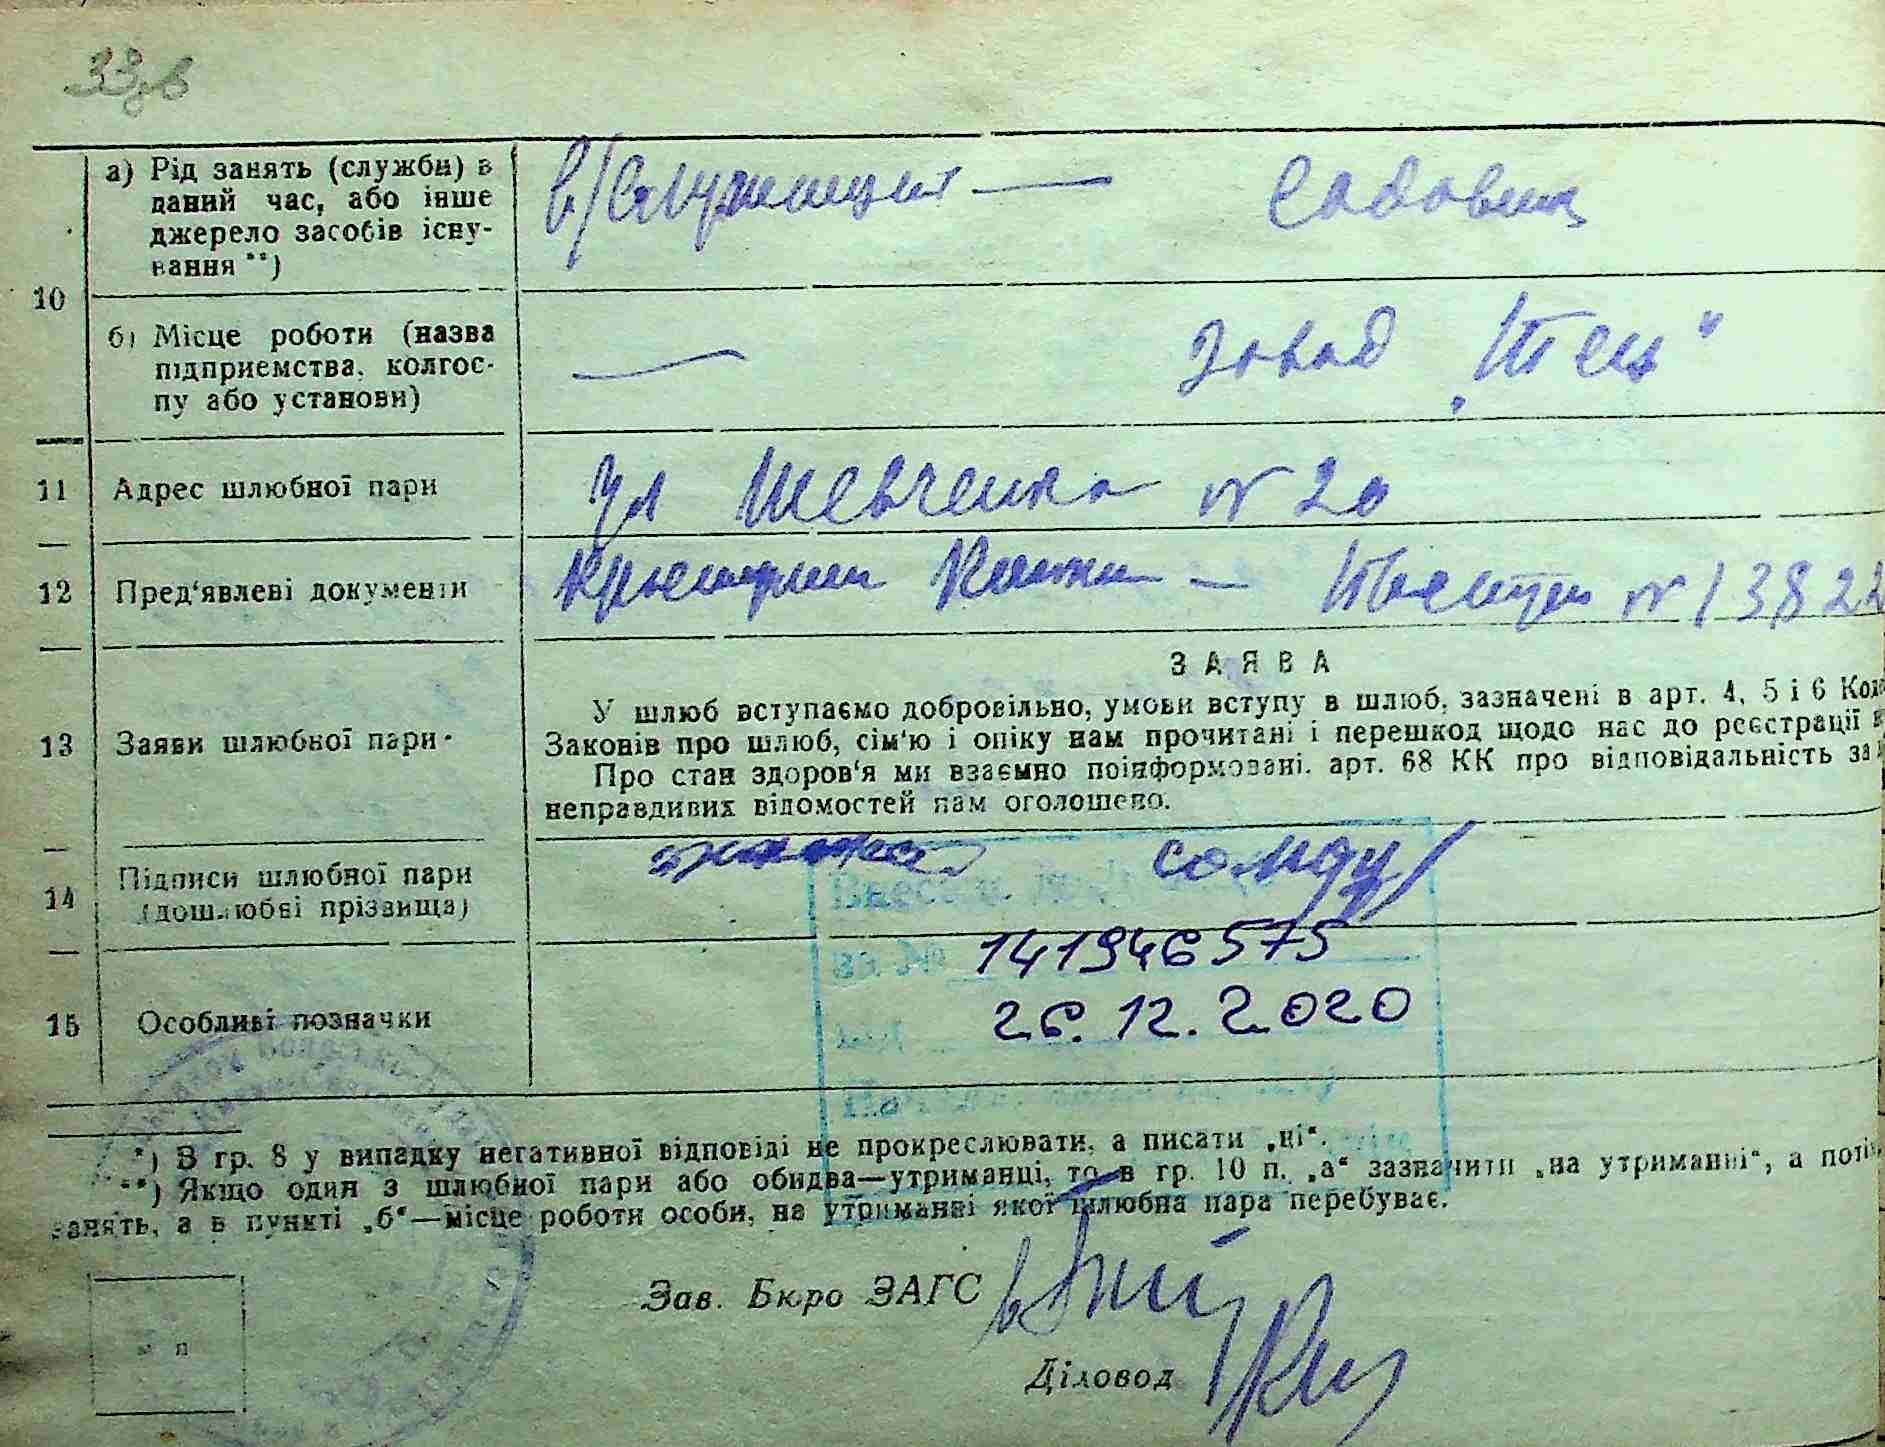 33
а) Рід занять (служби) в
даний час, або інше
джерело засобів існу-
вання **)
в/Служащий — Садовник
10
б) Місце роботи (назва
підприємства, колгос-
пу або установи)
— завод
11 Адрес шлюбної пари
ул Шевченка № 20
12 Пред'явлені документи
— № 13822
13 Заяви шлюбної пари
ЗАЯВА
У шлюб вступаємо добровільно, умови вступу в шлюб, зазначені в арт. 4, 5 і 6
Законів про шлюб, сім'ю і опіку нам прочитані і перешкод щодо нас до реєстрації
Про стан здоров'я ми взаємно поінформовані. арт. 68 КК про відповідальність за
неправдивих відомостей нам оголошено.
14 Підписи шлюбної пари
(дошлюбні прізвища)
141946575
26.12.2020
15 Особливі позначки
*) В гр. 8 у випадку негативної відповіді не прокреслювати, а писати „ні“.
**) Якщо один з шлюбної пари або обидва—утриманці, то в гр. 10 п. „а“ зазначити „на утриманні“, а
занять, а в пункті „б“—місце роботи особи, на утриманні якої шлюбна пара перебуває.
Зав. Бюро ЗАГС
Діловод
м п